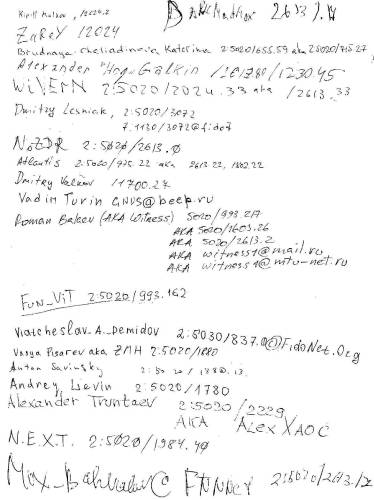 Kirill /2024.2
BANKMadhox 2613.14
ZaReY /2024
Brudnaya Katerina 2:5020/655.59 aka 2:5020/715.27
Alexander "Hogu" Galkin /1230.45
WiVERN 2:5020/2024.33 aka /2613.33
Dmitry Lesniak, 2:5020/3072
7.1130/3072@fido7
NoZDR 2:5020/2613.0
Atlantis 2:5020/975.22 aka 2613.22, 1802.22
Dmitry Valkov /1700.27
Vadim Turin GNUS@beep.ru
Roman Bakeev (AKA Witness) 5020/993.217
AKA 5020/1603.26
AKA 5020/2613.2
AKA witness1@mail.ru
AKA witness1@mtu-net.ru
Fun_ViT 2:5020/993.162
Viatcheslav_A._Demidov 2:5030/837.0@FidoNet.Org
Vasya Pisarev aka ZMH 2:5020/1880
Anton Savinsky 2:5020/1880.13
Andrey Lievin 2:5020/1780
Alexander Truntaev 2:5020/2229
AKA Alex XAOC
N.E.X.T. 2:5020/1984.40
Max_ 2:5020/2613.12